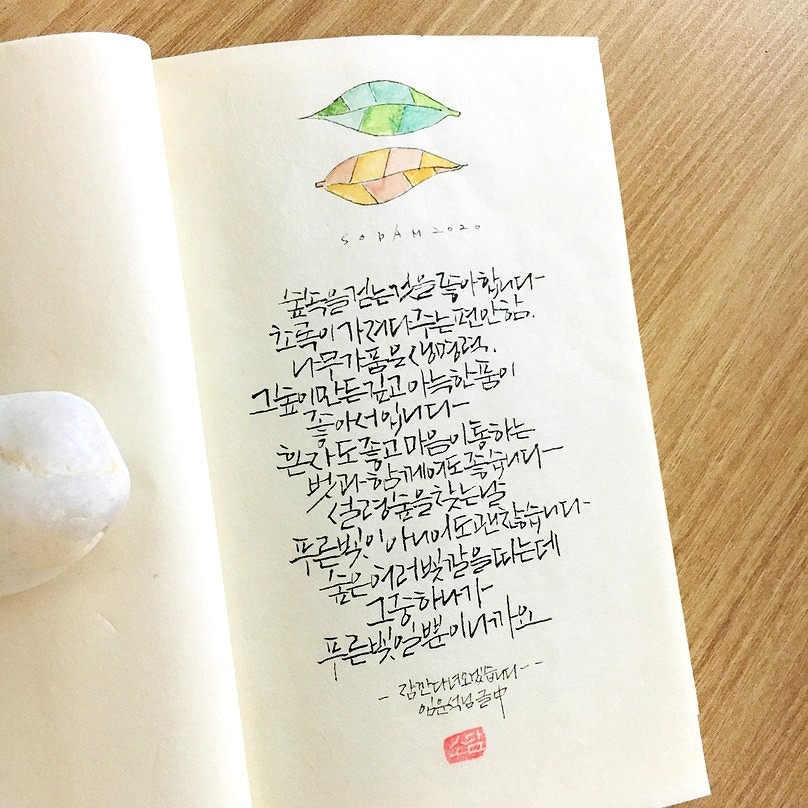 SODAM 2020
숲속을 걷는것을 좋아합니다
초록이 가져다주는 편안함.
나무가 품은 생명력.
그 숲이 만든 깊고 아늑한 품이
좋아서입니다
혼자도 좋고 마음이 통하는
벗과 함께여도 좋습니다
설령 숲을 찾는 날
푸른빛이 아니어도 괜찮습니다
숲은 여러 빛깔을 띠는데
그중 하나가
푸른빛일뿐이니까요
- 잠깐 다녀오겠습니다 -
임운석님 글 中
소담